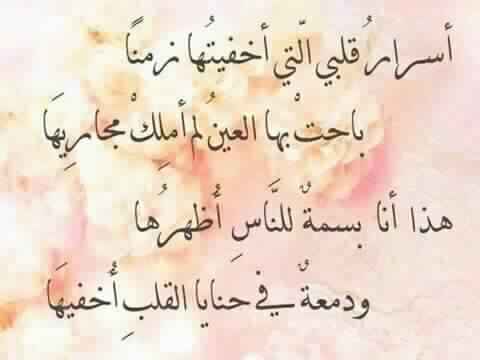 أسرارُ قلبي الّتي أخفيتُها زمنًا
باحتْ بها العينُ لم أملِكْ مجاريهَا
هذا أنا بسمةٌ للنَّاسِ أُظهرُها
ودمعةٌ في حنايا القلبِ أُخفيهَا